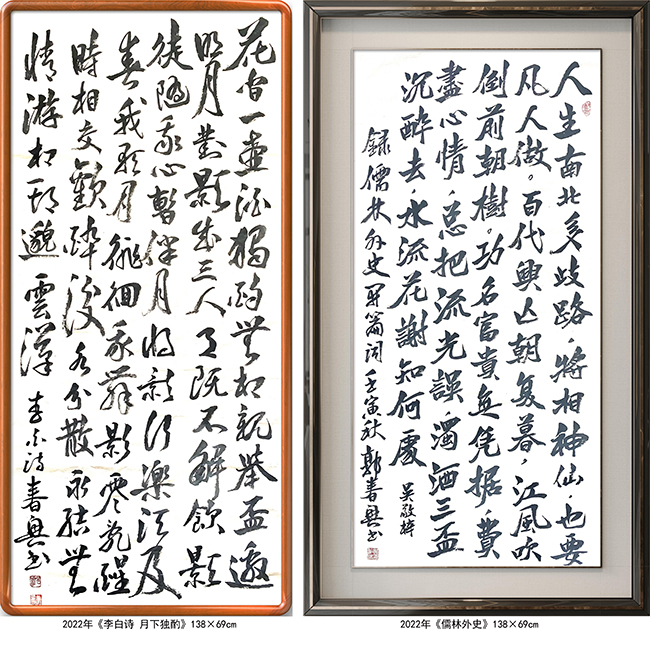 花间一壶酒獨酌無相親舉盃邀
明月對影成三人月既不解飲影
徒隨我心暫伴月将影行樂須及
春我歌月徘徊我舞影零亂醒
時相交歡醉後各分散永結無
情游相期邈雲漢 李白诗 春興书
2022年《李白诗 月下独酌》138×69cm
人生南北多歧路，将相神仙，也要
凡人做。百代興亡朝复暮，江風吹
倒前朝樹。功名富貴無凭據，費
盡心情，总把流光誤，濁酒三盃
沉醉去，水流花謝知何處 吴敬梓
録儒林外史開篇词 壬寅秋 郭春興书
2022年《儒林外史》138×69cm